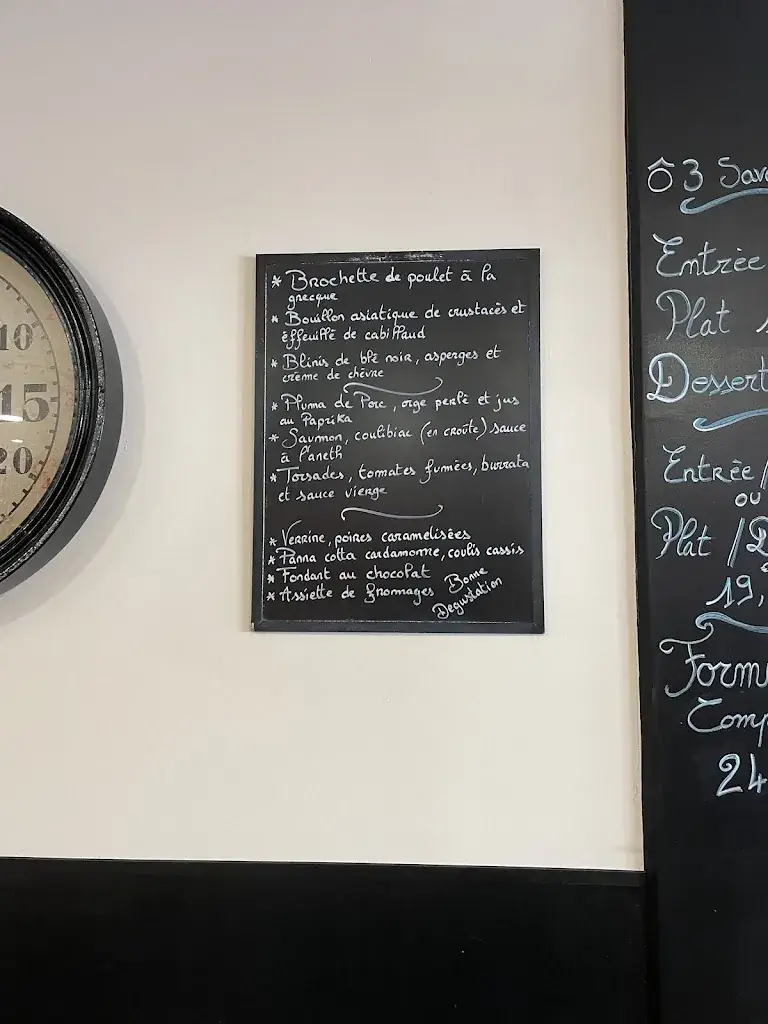 * Brochette de poulet à la
grecque
* Bouillon asiatique de crustacés et
éffeuillé de cabillaud
* Blinis de blé noir, asperges et
crème de chèvre
* Pluma de Porc, orge perlé et jus
au Paprika
* Saumon, coulibiac (en croûte) sauce
à l'aneth
* Torsades, tomates fumées, burrata
et sauce vierge
* Verrine, poires caramelisées
* Panna cotta cardamome, coulis cassis
* Fondant au chocolat
* Assiette de fromages
Bonne
Degustation
10
15
20
Ô 3 Sav
Entrée
Plat
Dessert
Entrée /
ou
Plat /
19,
Form
Comp
24